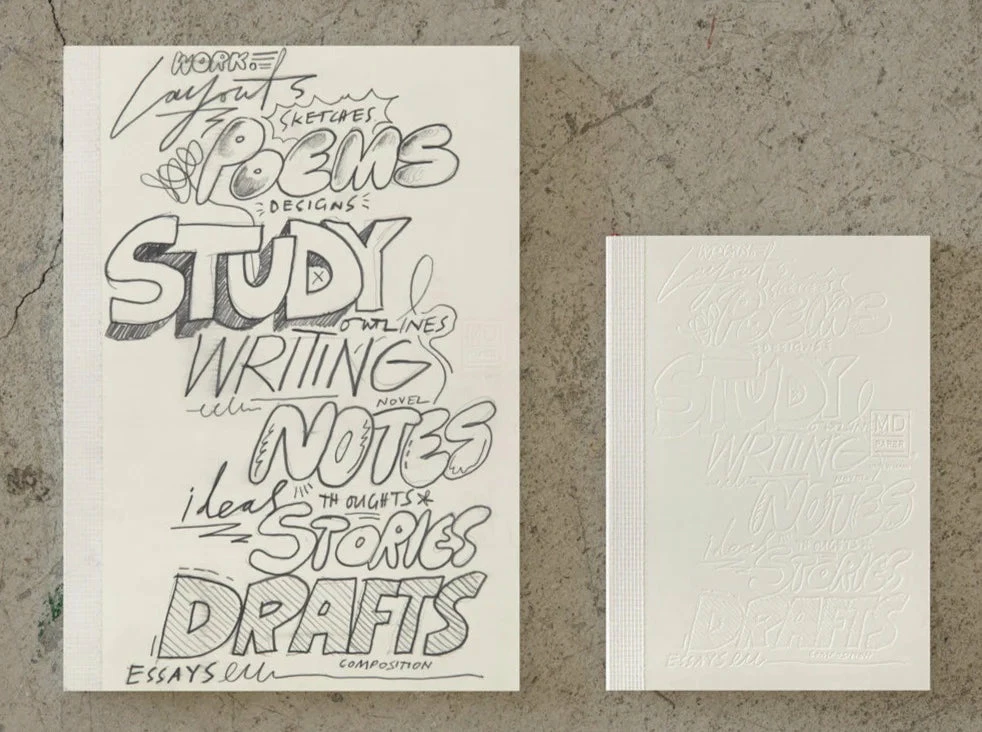 WORK!
Layouts
SKETCHES
POEMS
DESIGNS
STUDY
OUTLINES
WRITING
NOVEL
NOTES
ideas
THOUGHTS
STORIES
DRAFTS
COMPOSITION
ESSAYS
MD
PAPER
WORK!
Layouts
SKETCHES
POEMS
DESIGNS
STUDY
OUTLINES
WRITING
MD
PAPER
NOVEL
NOTES
ideas
THOUGHTS
STORIES
DRAFTS
COMPOSITION
ESSAYS